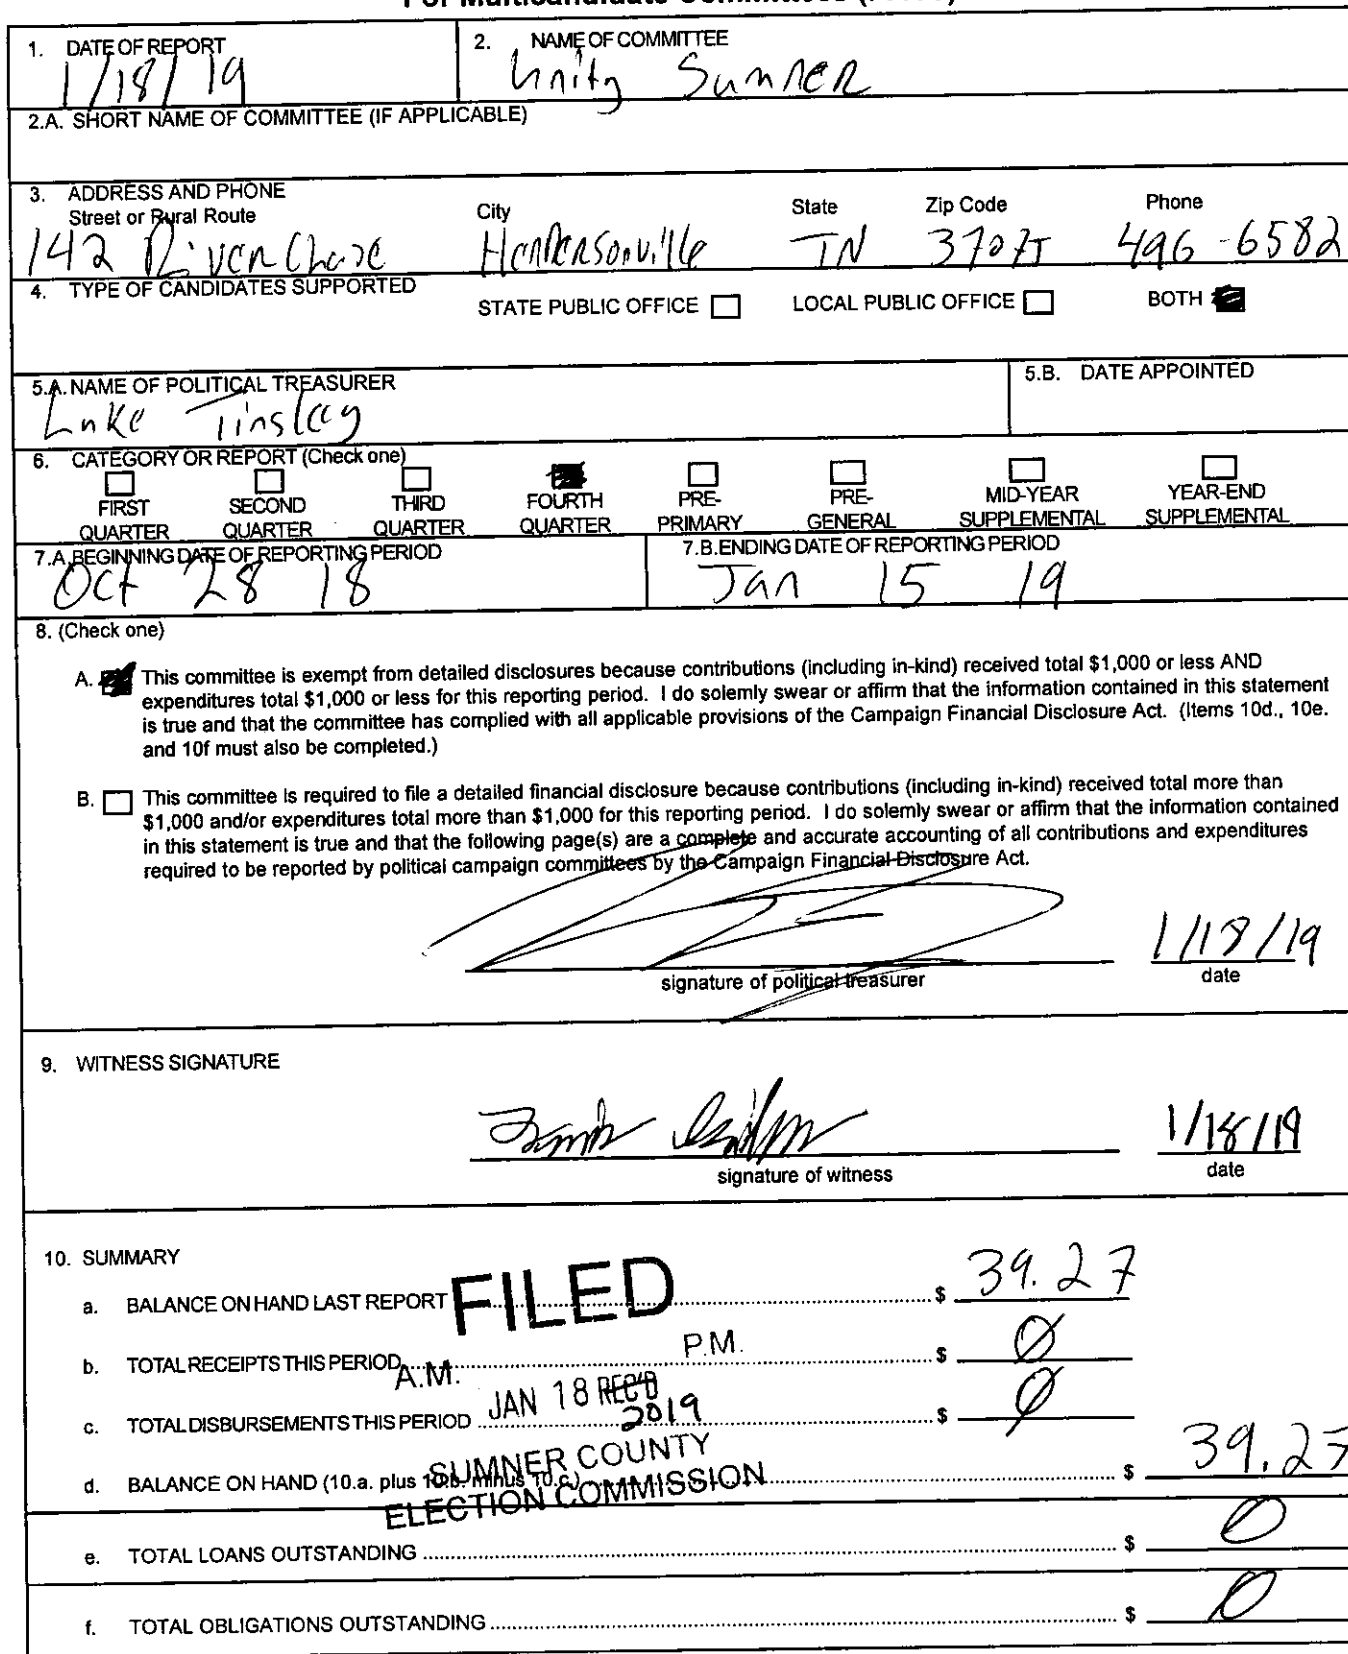 1. DATE OF REPORT
1/18/19
2. NAME OF COMMITTEE
Unity Sumner
2.A. SHORT NAME OF COMMITTEE (IF APPLICABLE)
3. ADDRESS AND PHONE
Street or Rural Route City State Zip Code Phone
142 Riverchase Hendersonville TN 37075 496-6582
4. TYPE OF CANDIDATES SUPPORTED
STATE PUBLIC OFFICE LOCAL PUBLIC OFFICE BOTH
5.A. NAME OF POLITICAL TREASURER
Luke Tinsley
5.B. DATE APPOINTED
6. CATEGORY OR REPORT (Check one)
FIRST QUARTER
SECOND QUARTER
THIRD QUARTER
FOURTH QUARTER
PRE-PRIMARY
PRE-GENERAL
MID-YEAR SUPPLEMENTAL
YEAR-END SUPPLEMENTAL
7.A. BEGINNING DATE OF REPORTING PERIOD
Oct 28 18
7.B. ENDING DATE OF REPORTING PERIOD
Jan 15 19
8. (Check one)
A. This committee is exempt from detailed disclosures because contributions (including in-kind) received total $1,000 or less AND
expenditures total $1,000 or less for this reporting period. I do solemly swear or affirm that the information contained in this statement
is true and that the committee has complied with all applicable provisions of the Campaign Financial Disclosure Act. (Items 10d., 10e.
and 10f must also be completed.)
B. This committee is required to file a detailed financial disclosure because contributions (including in-kind) received total more than
$1,000 and/or expenditures total more than $1,000 for this reporting period. I do solemly swear or affirm that the information contained
in this statement is true and that the following page(s) are a complete and accurate accounting of all contributions and expenditures
required to be reported by political campaign committees by the Campaign Financial Disclosure Act.
1/18/19
signature of political treasurer date
9. WITNESS SIGNATURE
1/18/19
signature of witness date
10. SUMMARY
FILED
a. BALANCE ON HAND LAST REPORT $ 39.27
b. TOTAL RECEIPTS THIS PERIOD $ 0
A.M. P.M.
JAN 18 REC'D
2019
c. TOTAL DISBURSEMENTS THIS PERIOD $ 0
SUMNER COUNTY
ELECTION COMMISSION
d. BALANCE ON HAND (10.a. plus 10.b. minus 10.c.) $ 39.27
e. TOTAL LOANS OUTSTANDING $ 0
f. TOTAL OBLIGATIONS OUTSTANDING $ 0